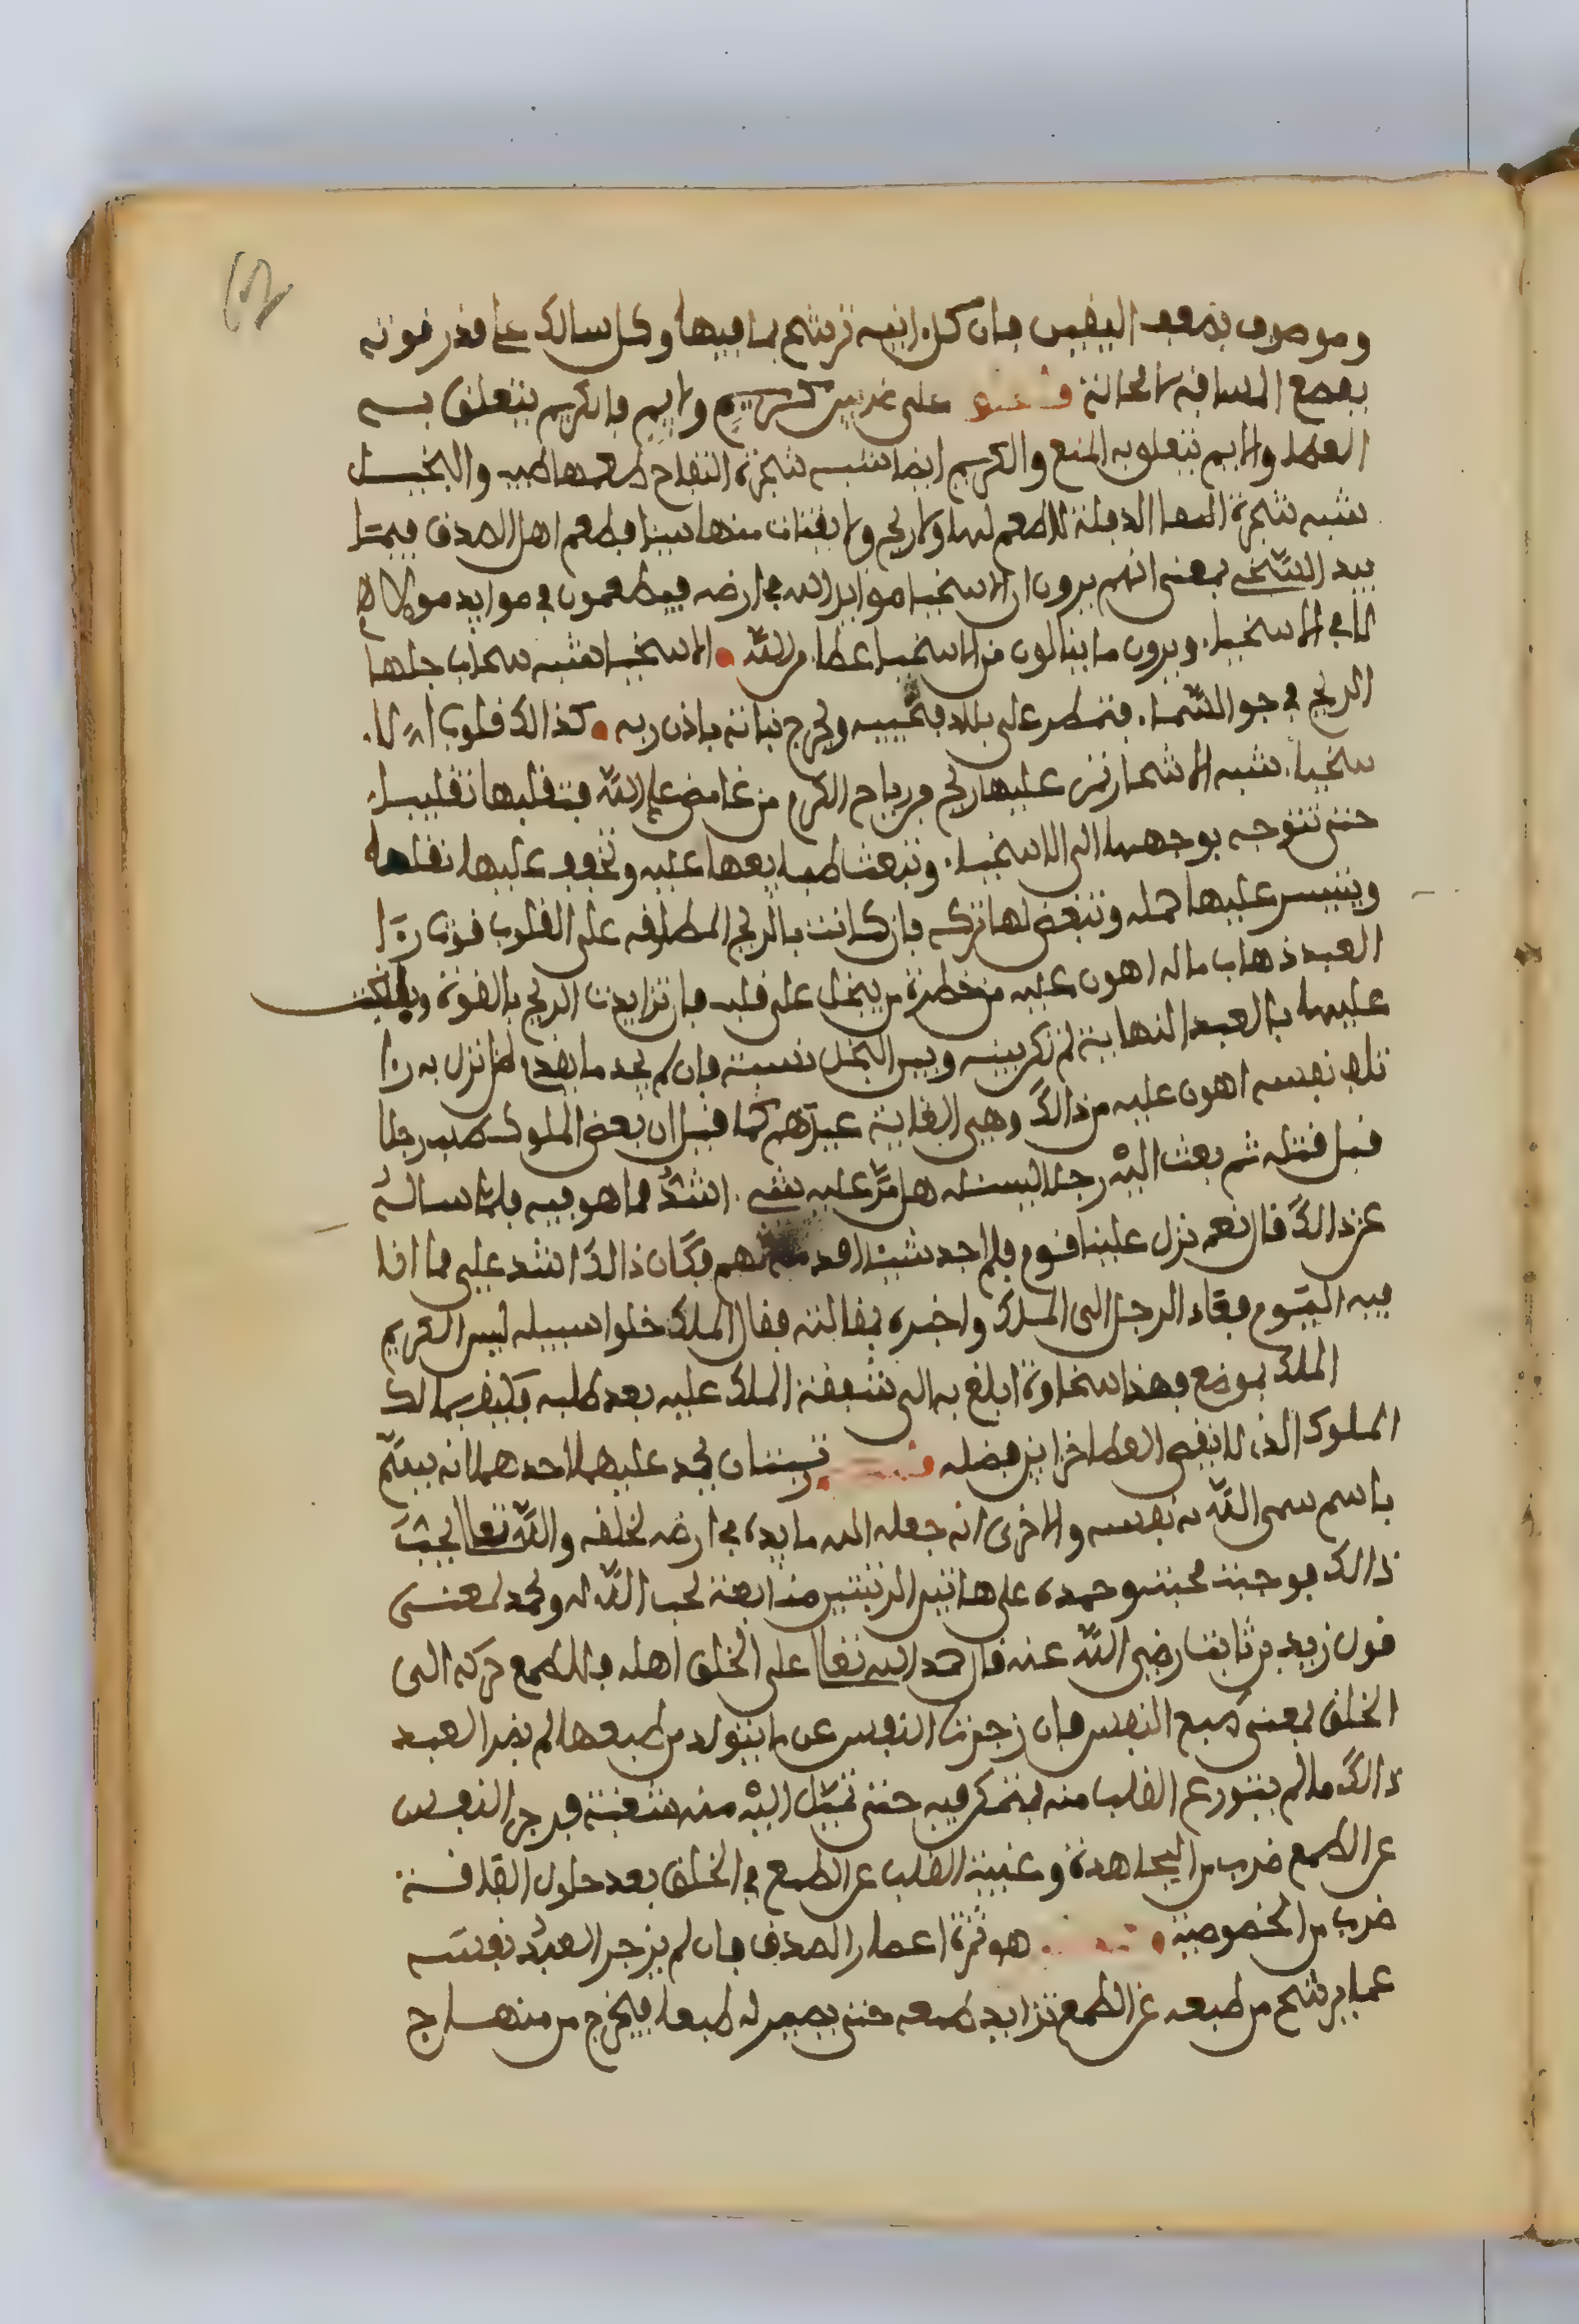 وموصوف بضعف اليقين فان كل انيه ترشح بما فيها وكل سالك على قدر قوته
يقطع المسافة لا محالة على ضربين كريم ولايم فالكريم يتعلق به
العطا والايم تتعلق به المنع والكريم ايضا شبه شجرة التفاح طعمها طيب والبخيل
شبه شجرة الدفلة لا طعم لها ولا ريح ولا يقتات منها شيئا فطعم اهل الصدق فيما
بيد السخي بمعنى انهم يرون ان الاسخيا موايد الله في ارضه فيطعمون في موايد مولاهم
لا في الاسخيا ويرون ما ينالون من الاسخيا عطا من الله الاسخيا تشبه سحاب جلها
الريح في جو السما فتمطر على بلاد فتحييه ويخرج نباته باذن ربه كذالك قلوب الا
سخيا شبه الاشجار تمر عليها ريح من رياح الكرم من غامض علم الله فتقلبها تقليبا
حتى تتوجه بوجهها الى الاسخيا وتبعث طبايعها عليه وتخفف عليها نقلها
ويتيسر عليها حمله وتبغض لها تركه فان كانت بالريح المطلوقه على القلوب قوى را
العبد ذهاب ماله اهون عليه من خطرة من يبخل على قلبه فان تزايدت الريح بالقوة وبلغت
عليها بالعبد النهاية لم تكن بينه وبين البخل نسبة فان لم يجد ما يهدي لمن نزل به را
تلف نفسه اهون عليه من ذالك وهي الغاية كما قيل ان بعض الملوك صلب رجلا
قبل قتله ثم بعث اليه رجلا ليسئله هل مر عليه شي اشد مما هو فيه فلما ساله
عن ذالك قال نعم نزل علينا قوم فلم اجد شيئا اقد لهم فكان ذالك اشد علي مما انا
فيه اليوم فجاء الرجل الى الملك واخبره بمقالته فقال الملك خلوا سبيله ليس الكريم
الملك بموضع وهذا سخاوة ابلغ به الى شفقة الملك عليه بعد طلبه فكيف بمالك
الملوك الذي لا تفيض العطا خزاين فضله رتبتان يحمد عليهما احدهما انه يسم
باسم سمى الله به نفسه والاخرى انه جعله الله مايدة في ارضه لخلقه والله تعا يحب
ذالك فوجبت محبته وحمده على هاتين الرتبتين متابعة لحب الله له ويحمد لمعنى
قول زيد بن ثابت رضي الله عنه قال حمد الله تعا على الخلق اهله فالطمع حركه الى
الخلق بمعنى طبع النفس فان زجرت النفس عن ما يتولد من طبعها لم يضر العبد
ذالك ما لم يتورع القلب منه فيتمكن فيه حتى تميل اليه منه شعبة فزجر النفس
عن الطمع ضرب من المجاهدة وغيبة القلب عن الطمع في الخلق بعد حلول الفاقة
ضرب من الخصوصية هو ثمرة اعصار الصدق فان لم يزجر العبد نفسه
عما يرشح من طبعه عن الطمع تزايد طمعه حتى يصير له طبعا فيخرج من منهاج